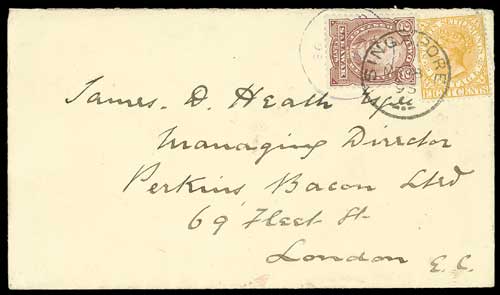 SINGAPORE
95
EIGHT CENTS
James. D. Heath Esqre
Managing Director
Perkins Bacon Ltd
69 Fleet St.
London E. C.